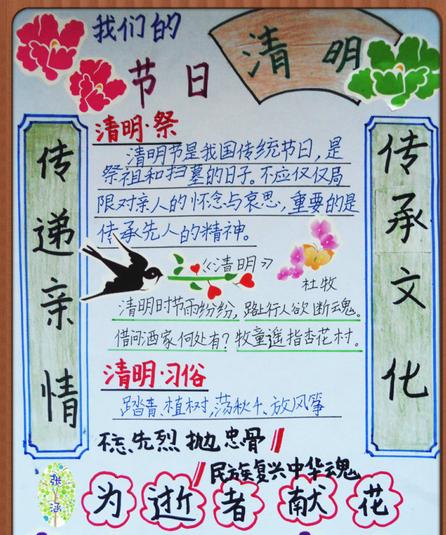 我们的
节日
清明
传递亲情
传承文化
清明·祭
清明节是我国传统节日，是
祭祖和扫墓的日子。不应仅仅局
限对亲人的怀念与哀思，重要的是
传承先人的精神。
《清明》
杜牧
清明时节雨纷纷，路上行人欲断魂。
借问酒家何处有？牧童遥指杏花村。
清明·习俗
踏青、植树，荡秋千、放风筝
不忘先烈抛忠骨
民族复兴中华魂
为逝者献花